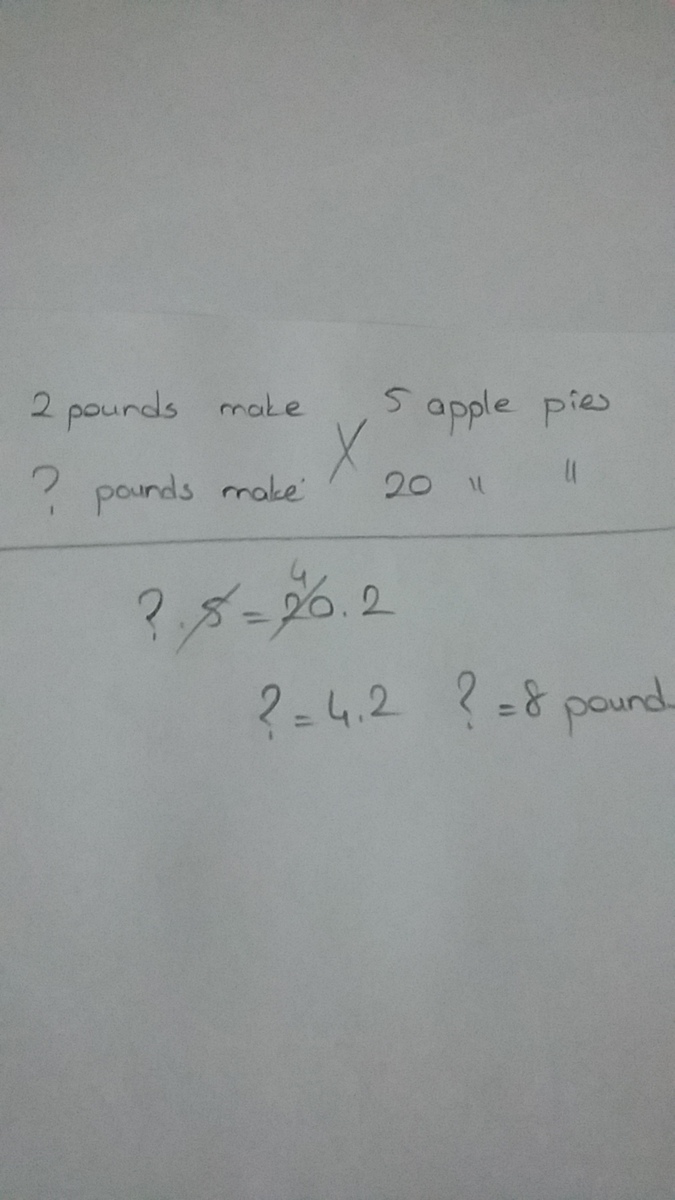 2 pounds make X 5 apple pies
? pounds make 20 " "
4
? . 5 = 20 . 2
? = 4.2 ? = 8 pound